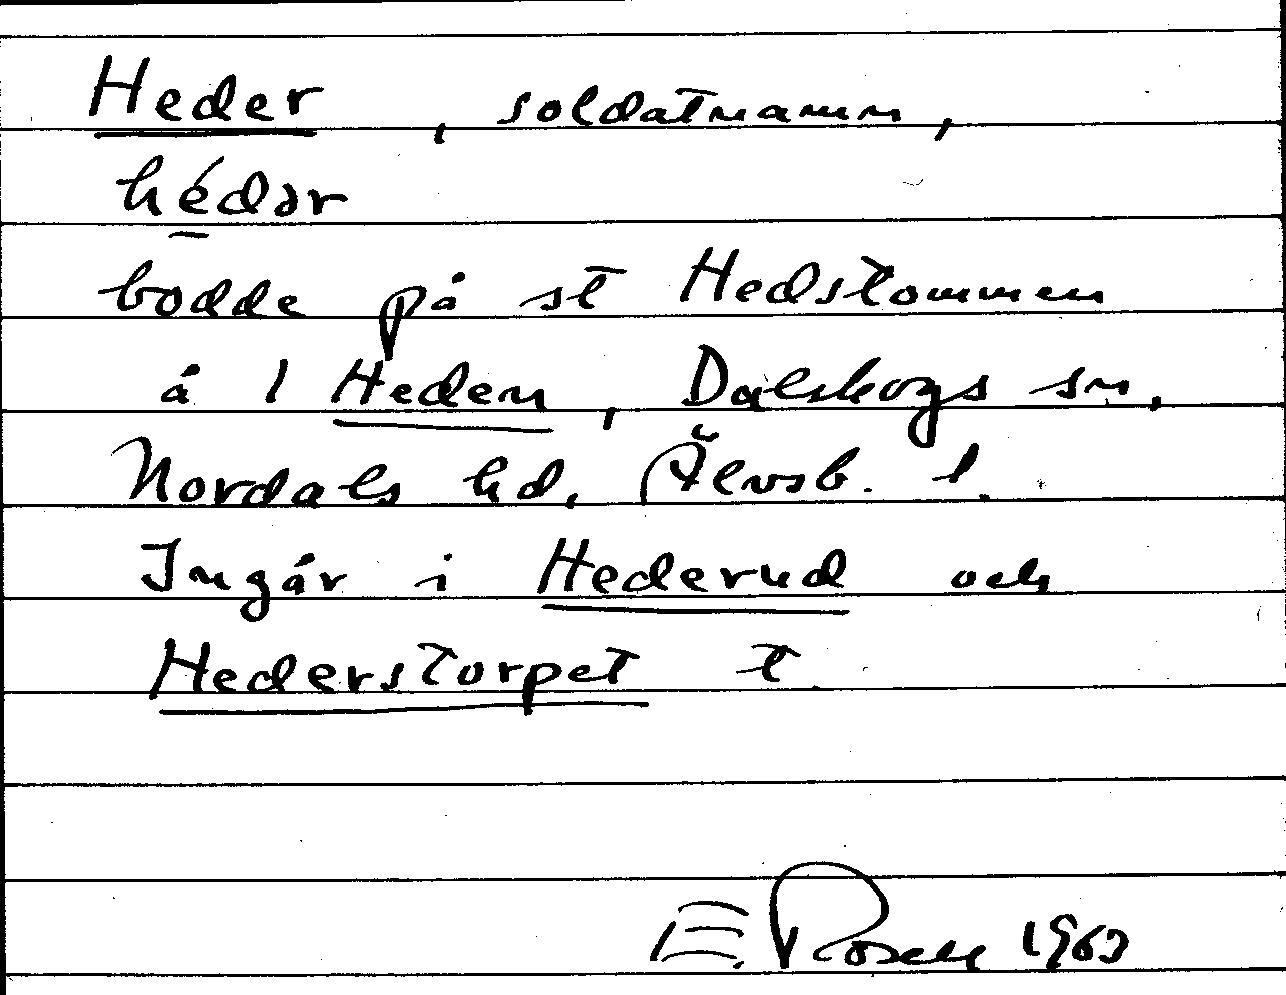 Heder, soldatnamn,
hédər
bodde på st Hedstommen
å 1 Heden, Dalskogs sn.
Nordals hd. Älvsb. l.
Ingår i Hederud och
Hederstorpet t
E. Rosell 1963